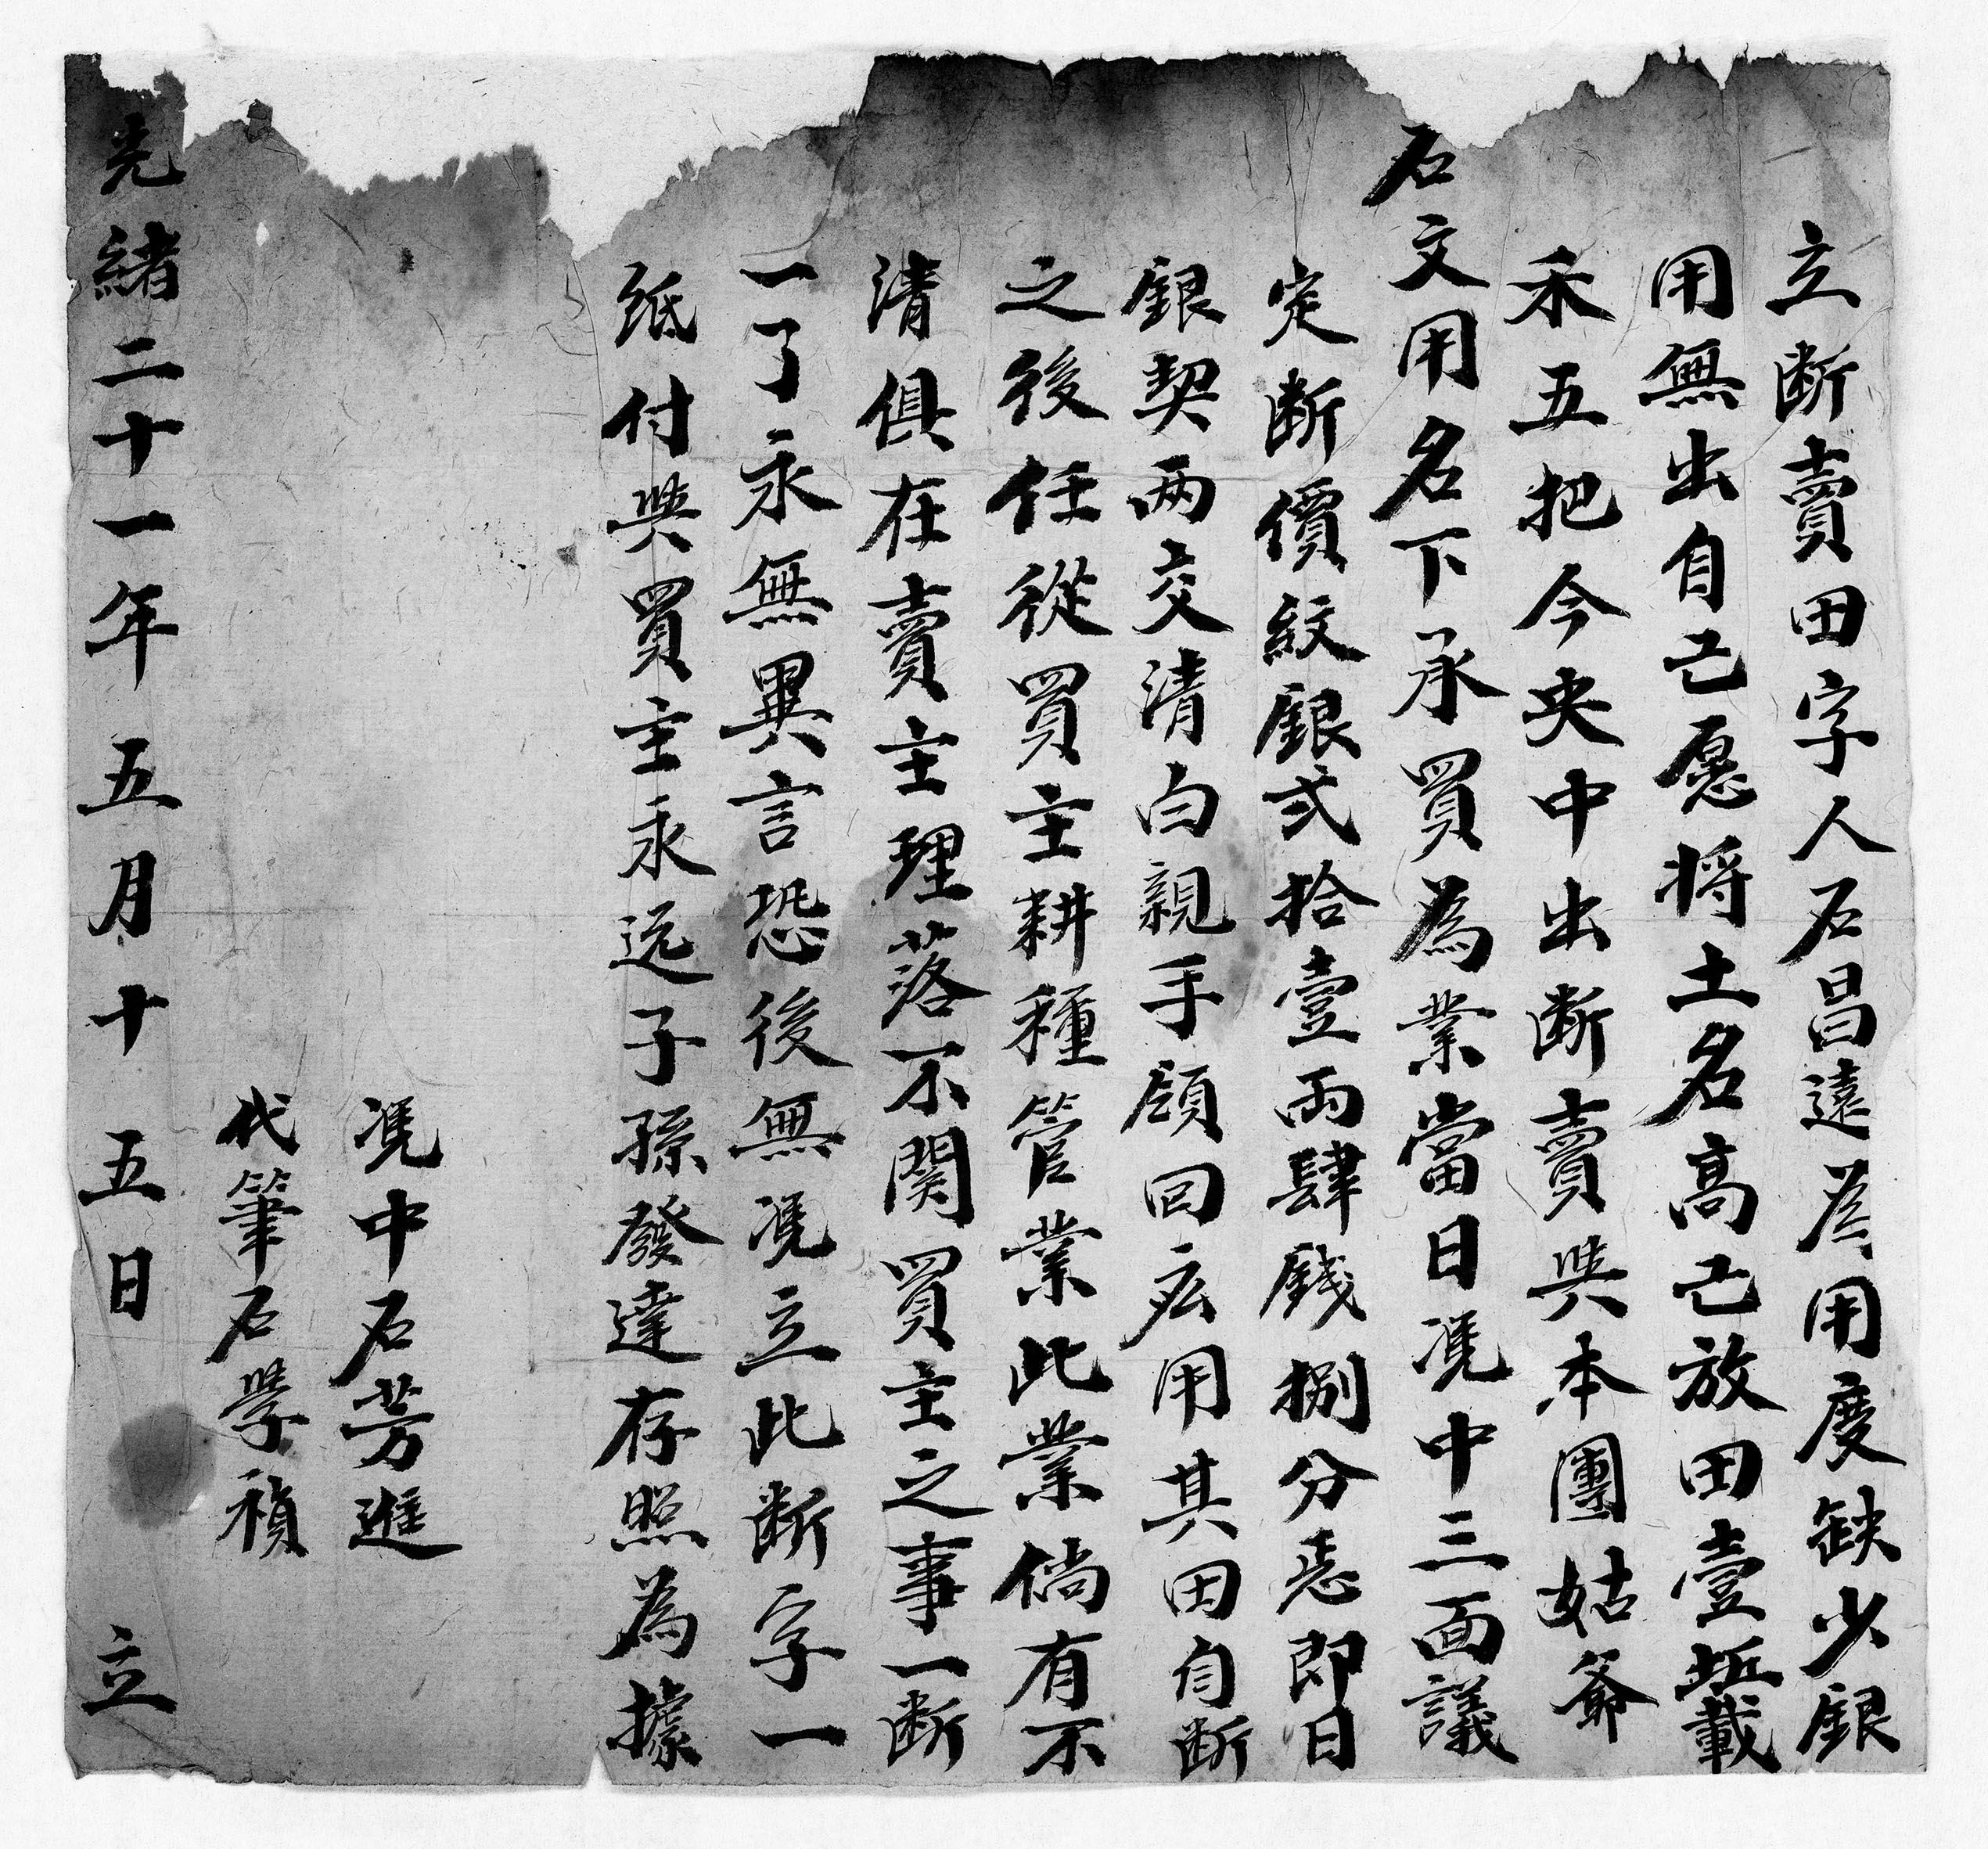 立断賣田字人石昌遠為用度缺少銀
用無出自己愿将土名高己放田壹坵載
禾五把今央中出断賣與本團姑爺
石文用名下承買為業當日凴中三面議
定断價紋銀弍拾壹両肆錢捌分悉即日
銀契两交清白親手領回家用其田自断
之後任從買主耕種管業此業倘有不
清俱在賣主理落不関買主之事一断
一了永無異言恐後無凴立此断字一
紙付與買主永远子孫發達存照為據
凴中石芳進
代筆石學禎
光緒二十一年五月十五日立